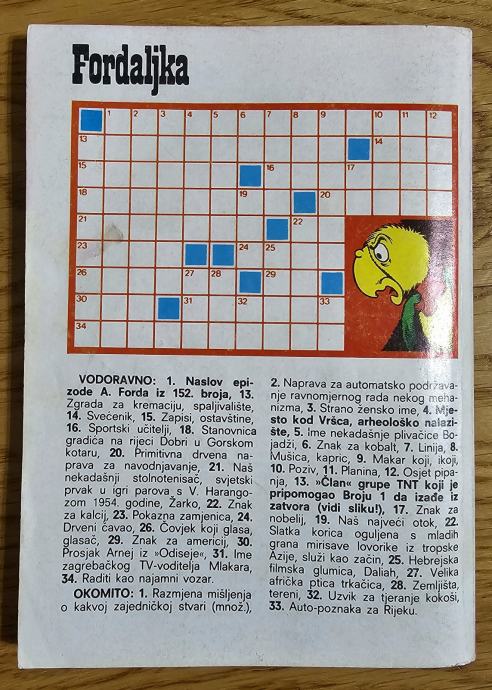 Fordaljka
1 2 3 4 5 6 7 8 9 10 11 12
13 14
15 16 17
18 19 20
21 22
23 24 25
26 27 28 29
30 31 32 33
34
VODORAVNO: 1. Naslov epi-
zode A. Forda iz 152. broja, 13.
Zgrada za kremaciju, spaljivalište,
14. Svećenik, 15. Zapisi, ostavštine,
16. Sportski učitelj, 18. Stanovnica
gradića na rijeci Dobri u Gorskom
kotaru, 20. Primitivna drvena na-
prava za navodnjavanje, 21. Naš
nekadašnji stolnotenisač, svjetski
prvak u igri parova s V. Harango-
zom 1954. godine, Žarko, 22. Znak
za kalcij, 23. Pokazna zamjenica, 24.
Drveni čavao, 26. Čovjek koji glasa,
glasač, 29. Znak za americij, 30.
Prosjak Arnej iz »Odiseje«, 31. Ime
zagrebačkog TV-voditelja Mlakara,
34. Raditi kao najamni vozar.
OKOMITO: 1. Razmjena mišljenja
o kakvoj zajedničkoj stvari (množ.),
2. Naprava za automatsko podržava-
nje ravnomjernog rada nekog meha-
nizma, 3. Strano žensko ime, 4. Mje-
sto kod Vršca, arheološko nalazi-
šte, 5. Ime nekadašnje plivačice Bo-
jadži, 6. Znak za kobalt, 7. Linija, 8.
Mušica, kapric, 9. Makar koji, ikoji,
10. Poziv, 11. Planina, 12. Osjet pipa-
nja, 13. »Član« grupe TNT koji je
pripomogao Broju 1 da izađe iz
zatvora (vidi sliku!), 17. Znak za
nobelij, 19. Naš najveći otok, 22.
Slatka korica oguljena s mladih
grana mirisave lovorike iz tropske
Azije, služi kao začin, 25. Hebrejska
filmska glumica, Daliah, 27. Velika
afrička ptica trkačica, 28. Zemljišta,
tereni, 32. Uzvik za tjeranje kokoši,
33. Auto-poznaka za Rijeku.